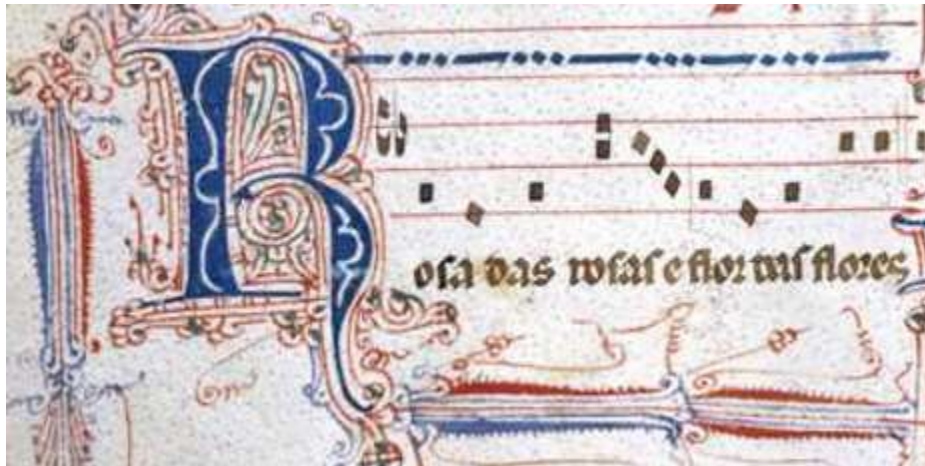 Rosa das rosas e flor das flores